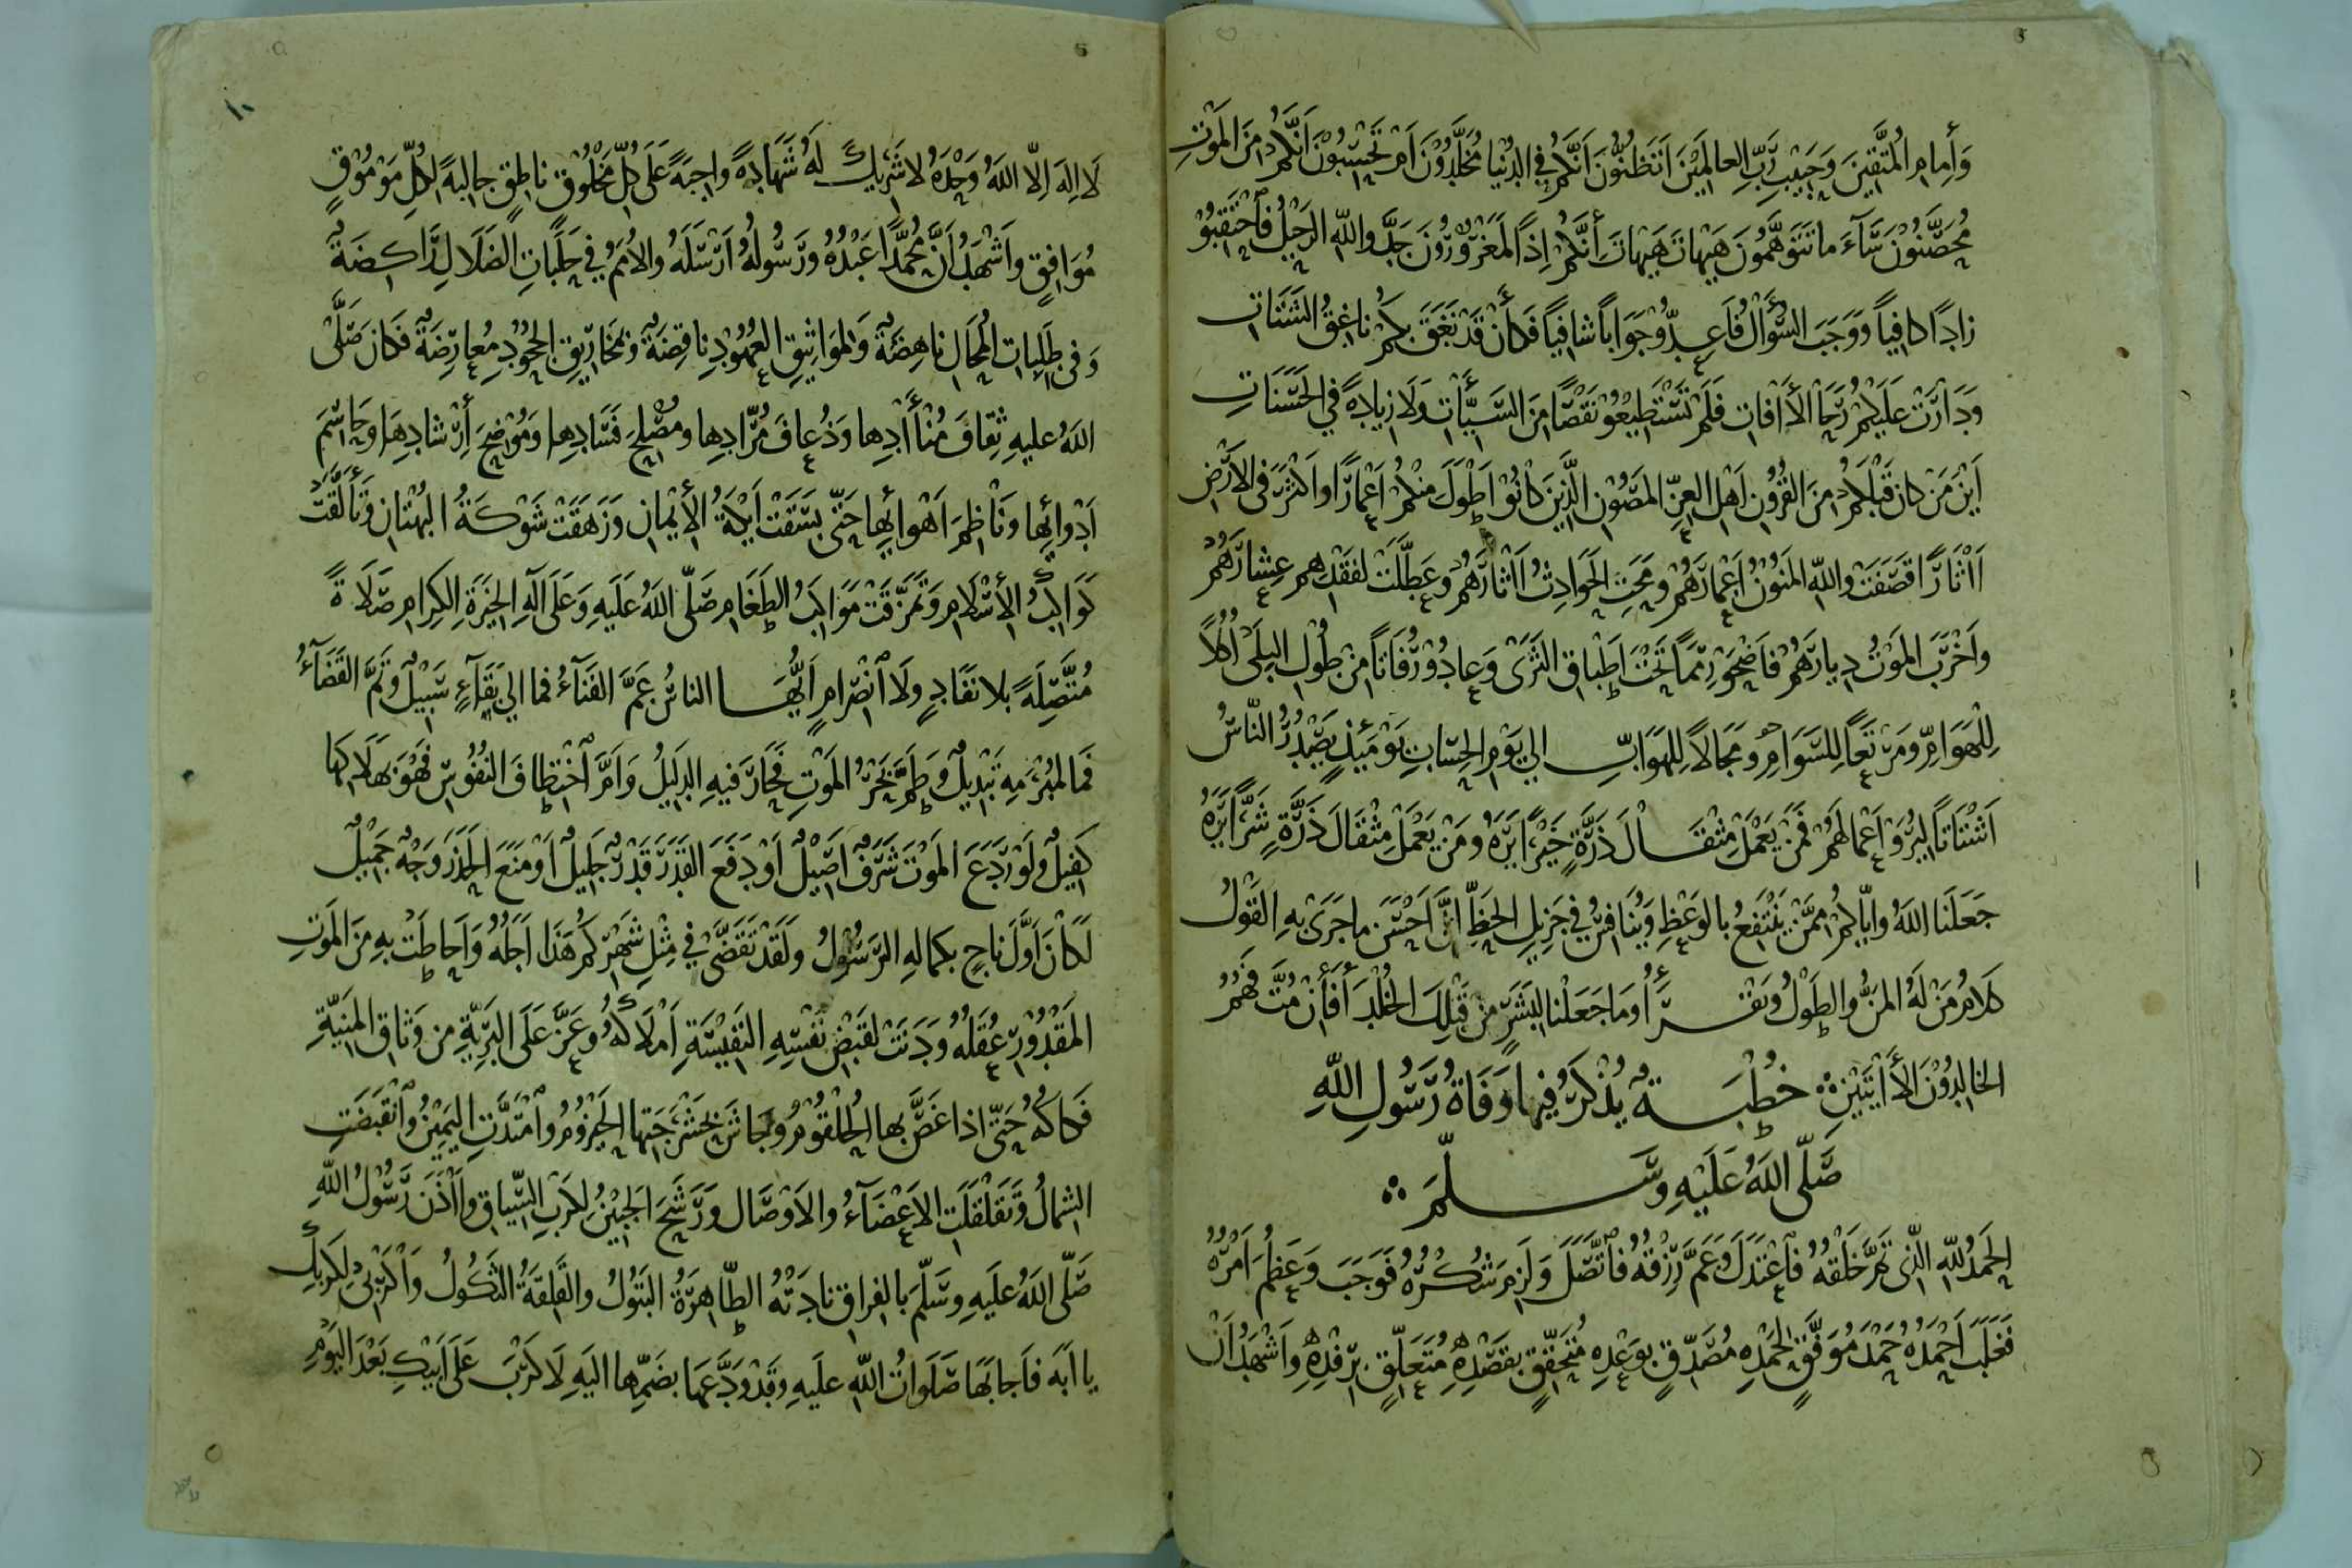 وَأِمامِ المُتَّقِينَ وَحَبِيْبِ رَّبِّ العالَمِيْنَ اَتَظُنُّونَ اَنَّكُمْ فِي الدُّنْيا مُخَلَّدُوْنَ اَمْ تَحْسَبُوْنَ اَنَّكُمْ مِنَ المَوْتِ
مُحَصَّنُوْنَ سَآءَ ما تَتَوَهَّمُونَ هَيْهاتَ هَيْهاتَ أَنَّكُمْ اِذًا لَمَغْرُوْرُوْنَ جَدَّ واللهِ الرَحِيْلُ فَاَحْتَقِبُوْ
زادًا كافِياً وَوَجَبَ السُّؤَالُ فَاَعِدُّوْ جَوَاباً شافِياً فَكَأَنْ قَدْ نَعَقَ بِكُمْ ناعِقُ الشَتَاتِ
وَدَارَتْ عَلَيْكُمْ رَحَا الأَافاتِ فَلَمْ تَسْتَطِيْعُوْ نَقْصًا مِنَ السَيِّئَاتِ وَلَا زِيادَةً فِي الحَسَنَاتِ
اَيْنَ مَنْ كانَ قَبْلَكُمْ مِنَ القُرُوْنِ اَهْلِ العِزِّ المَصُوْنِ الَّذِيْنَ كانُوْ اَطْوَلَ مِنْكُمْ اَعْمارًا وَاَكْثَرَ فِى الاَرْضِ
اَاثَارًا قَصَفَتْ واللهِ المَنُوْنُ اَعْمارَهُمْ وَمَحَتِ الحَوادِثُ اَاثَارَهُمْ وَعَطَّلَتْ لفَقْدِهِم عِشارَهُمْ
وَاَخْرَبَ المَوْتُ دِيارَهُمْ فَاَضْحَوْ رِمَمًا تَحْتَ اَطْباقِ الثَرَى وَعادُوْ رُفَاتًا مِنْ طُوْلِ البِلَى اُكُلاً
لِلْهَوَامِّ وَمَرْتَعًا لِلسَّوَامِّ وَمَجَالاً لِلْهَوَابِّ الى يَوْمِ الحِسَابِ يَوْمَئِذٍ يَصْدُرُ النّاسُ
اَشْتَاتًا لِيُرَوْ اَعْمالَهُمْ فَمَنْ يَعْمَلْ مِثْقَالَ ذَرَّةٍ خَيْرًا يَرَهُ وَمَنْ يَعْمَلْ مِثْقَالَ ذَرَّةٍ شَرًّا يَرَهُ
جَعَلَنَا اللهُ وَاِيّاكُمْ مِمَّنْ يَنْتَفِعُ بالوَعْظِ وَيُنَافِسُ فِي جَزِيْلِ الحَظِّ اِنَّ اَحْسَنَ ما جَرَى بِهِ القَوْلُ
كَلَامُ مَنْ لَهُ المَنُّ والطَوْلُ وَيَقْرَأُ وَمَا جَعَلْنا لِبَشَرٍ مِنْ قَبْلِكَ الخُلْدَ أَفَأَنْ مُتَّ فَهُمُ
الخالِدُوْنَ الأَايَتَيْنِ خُطْبَةٌ يُذْكَرُ فِيْها وَفَاةُ رَسُولِ اللهِ
صَلَّى اللهُ عَلَيْهِ وَسَلَّمَ
الحَمْدُ للهِ الَّذِى قَهَرَ خَلْقَهُ فَاَعْتَدَلَ وَعَمَّ رِزْقُهُ فَاَتَّصَلَ وَلَزِمَ شُكْرُهُ فَوَجَبَ وَعَظُمَ اَمْرُهُ
فَغَلَبَ اَحْمَدُهُ حَمْدَ مُوَفَّقٍ لِحَمْدِهِ مُصَدِّقٍ بِوَعْدِهِ مُتَحَقِّقٍ بِقَصْدِهِ مُتَعَلِّقٍ بِرِفْدِهِ وَاَشْهَدُ اَنْ
١٠
لَا اِلَهَ اِلاَّ اللهُ وَحْدَهُ لا شَرِيْكَ لَهُ شَهَادَةً واجِبَةً عَلَى كُلِّ مَخْلُوْقٍ ناطِقٍ جالِبَةً لِكُلِّ مَوْمُوْقٍ
مُوَافِقٍ وَاَشْهَدُ اَنَّ مُحَمَّدًا عَبْدُهُ وَرَسُولُهُ اَرْسَلَهُ والاُمَمُ فِي حَلَبَاتِ الضَلَالِ رَاكِضَةٌ
وَفى طَلِبَاتِ المُحَالِ ناهِضَةٌ وَلِمَوَاثِيْقِ العُهُوْدِ ناقِضَةٌ وَبِمَخَارِيْقِ الجُحُوْدِ مُعارِضَةٌ فَكَانَ صَلَّى
اللهُ عَليهِ ثِقافَ مُنْأَادِها وَذُعافَ مُرَّادِها وَمُصْلِحَ فَسَادِها وَمُوْضِحَ أِرْشادِهَا وَحَاسِمَ
اَدْوائِها وَنَاظِمَ اَهْوائِها حَتّى بَسَقَتْ اَيْكَةُ الأِيْمانِ وَزَهَقَتْ شَوْكَةُ البُهْتانِ وَتَأَلَّقَتْ
كَوَاكِبُ الأِسْلَامِ وَتَمَزَّقَتْ مَوَاكِبُ الطَغَامِ صَلَّى اللهُ عَلَيهِ وَعَلَى آلِهِ الخِيَرَةِ الكِرامِ صَلَاةً
مُتَّصِلَةً بِلا نَفَادٍ وَلَا اَنْصِرامٍ اَيُّهَا الناسُ عَمَّ الفَنَآءُ فما الي بَقَآءٍ سَبِيْلٌ وَتَمَّ القَضَآءُ
فَما لِمُبْرَمِهِ تَبْدِيْلٌ وَطَمَّ بَحْرُ المَوْتِ فَحَارَ فيهِ الدَلِيْلُ وَاَمَّ اَخْتِطافَ النُفُوْسِ فَهُوَ بِهَلَاكِها
كَفِيْلٌ وَلَوْ رَدَعَ المَوْتَ شَرَفٌ اَصِيْلٌ اَوْ دَفَعَ القَدَرَ قَدْرٌ جَلِيلٌ اَوْ مَنَعَ الحَذَرَ وَجْهٌ جَمِيْلٌ
لَكَانَ اَوَّلَ ناجٍ بكمالِهِ الرَسُوْلُ وَلَقَدْ تَقَضَّى فِي مِثْلِ شَهْرِكُمْ هَذَا اَجَلُهُ وَاَحاطَتْ بِهِ مِنَ المَوْتِ
المَقْدُوْرِ عُقَلُهُ وَدَنَتْ لقَبْضِ نَفْسِهِ النَفِيْسَةِ اَمْلَاكُهُ وَعَزَّ عَلَى البَرِيَّةِ مِن وَثَاقِ المَنِيَّةِ
فَكاكُهُ حَتّى اذا غَصَّ بها الحُلْقُوْمُ وَجاشَ بِحَشْرَجَتِها الحَيْزُوْمُ وَاَمْتَدَّتِ اليَمِيْنُ وَاَنْقَبَضَتِ
الشِمالُ وَتَقَلْقَلَتِ الاَعْضَآءُ والاَوْصَال وَرَشَحَ الجَبِيْنُ لِكَرْبِ السِّياقِ وَاَاذَنَ رَسُوْلُ اللهِ
صَلَّى اللهُ عَلَيهِ وَسَلَّمَ بالفِراقِ نادَتْهُ الطّاهِرَةُ البَتُوْلُ والقَلِقَةُ الثَكُوْلُ وَاكَرْبِىْ لِكَرْبِكَ
يا اَبَه فَاَجابَها صَلَوَاتُ اللهِ عليهِ وَقَدْ وَدَّعَها بضَمِّها اليَهِ لَا كَرْبَ عَلَى اَبِيْكِ بَعْدَ اليَوْمِ